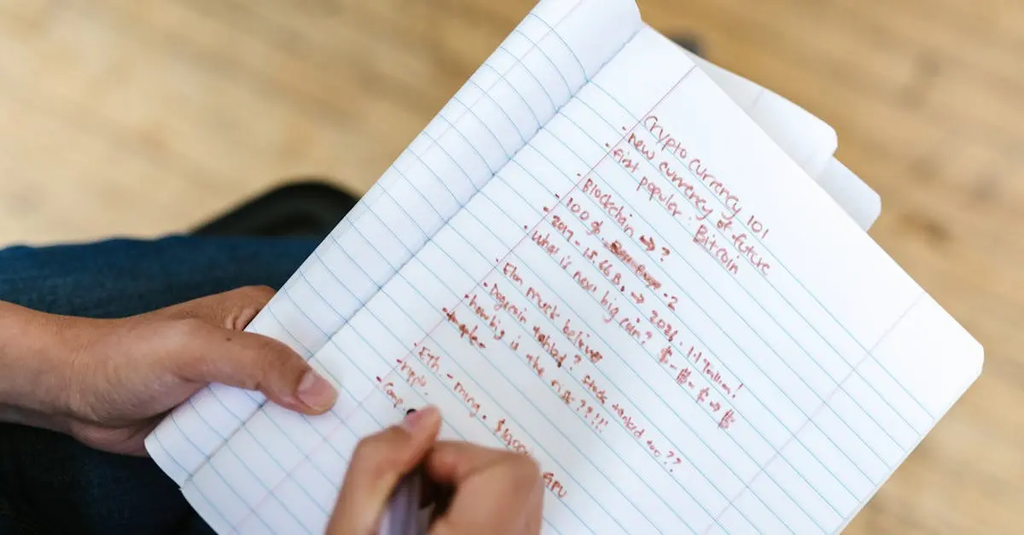 Cryptocurrency 101
- new currency of future
- First popular. Bitcoin
- Blockchain → ?
- 100 $
- 2017 - 15.66 B. → 2021. 1.1 Trillion!
- What is next big coin? $ - $ - $ → $
- Elon musk believer
- Dogecoin
- how big is the risk ????!!
- Eth. - mining - $1000 GPU
- Ripple
- Comp